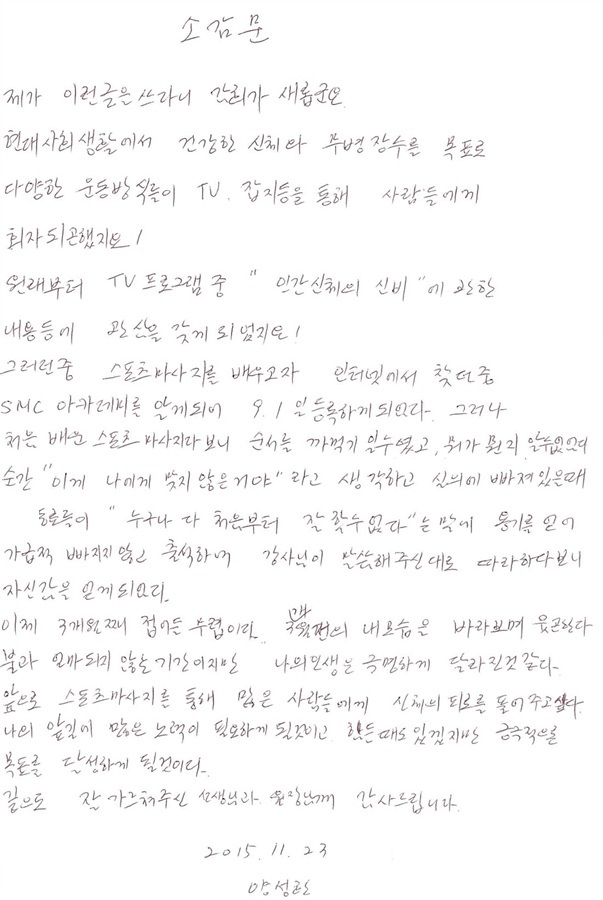 소감문
제가 이런글은 쓰라니 감회가 새롭군요.
현대사회생활에서 건강한 신체와 무병장수를 목표로
다양한 운동방식들이 TV. 잡지등을 통해 사람들에게
회자되곤했지요!
원래부터 TV프로그램 중 "인간신체의 신비"에 관한
내용등에 관심을 갖게 되었지요!
그러던중 스포츠마사지를 배우고자 인터넷에서 찾던중
SMC 아카데미를 알게되어 9.1일등록하게되었다. 그러나
처음 배운 스포츠마사지다 보니 순서를 까먹기 일수였고, 뭐가 뭔지 알수없었으며
순간 "이게 나에게 맞지 않은거야"라고 생각하고 실의에 빠져있은때
동료들이 "누구나 다 처음부터 잘 할수없다"는 말에 용기를 얻어
가급적 빠지지 않고 출석하여 강사님이 말씀해주신대로 따라하다보니
자신감을 얻게되었다.
이제 3개월째 접어든 무렵이다. 내모습은 바라보며 웃곤한다
불과 얼마되지 않은 기간이지만 나의인생은 극명하게 달라진것같다.
앞으로 스포츠마사지를 통해 많은 사람들에게 신체의 피로를 풀어주고싶다.
나의 앞길에 많은 노력이 필요하게 될것이고 힘든때도 있겠지만 긍극적으로
목표를 달성하게 될것이다.
끝으로 잘 가르쳐주신 선생님과 원장님께 감사드립니다.
2015. 11. 23
양성